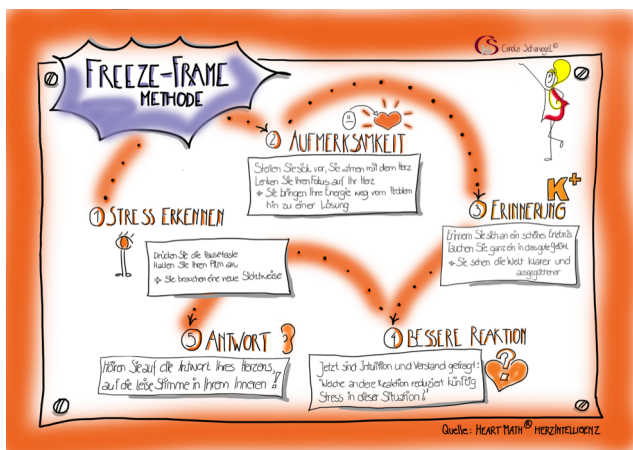 Carola Schanagel©
FREEZE-FRAME
METHODE
① STRESS ERKENNEN
Drücken Sie die Pausetaste
Halten Sie Ihren Film an.
→ Sie brauchen eine neue Sichtweise
② AUFMERKSAMKEIT
Stellen Sie sich vor, Sie atmen mit dem Herz
Lenken Sie Ihren Fokus auf Ihr Herz
→ Sie bringen Ihre Energie weg vom Problem
hin zu einer Lösung
K+
③ ERINNERUNG
Erinnern Sie sich an ein schönes Erlebnis
Tauchen Sie ganz ein in das gute Gefühl.
→ Sie sehen die Welt klarer und
ausgeglichener
④ BESSERE REAKTION
Jetzt sind Intuition und Verstand gefragt:
"Welche andere Reaktion reduziert künftig
Stress in dieser Situation?"
⑤ ANTWORT
Hören Sie auf die Antwort Ihres Herzens,
auf die leise Stimme in Ihrem Inneren!
Quelle: HEARTMATH® HERZINTELLIGENZ